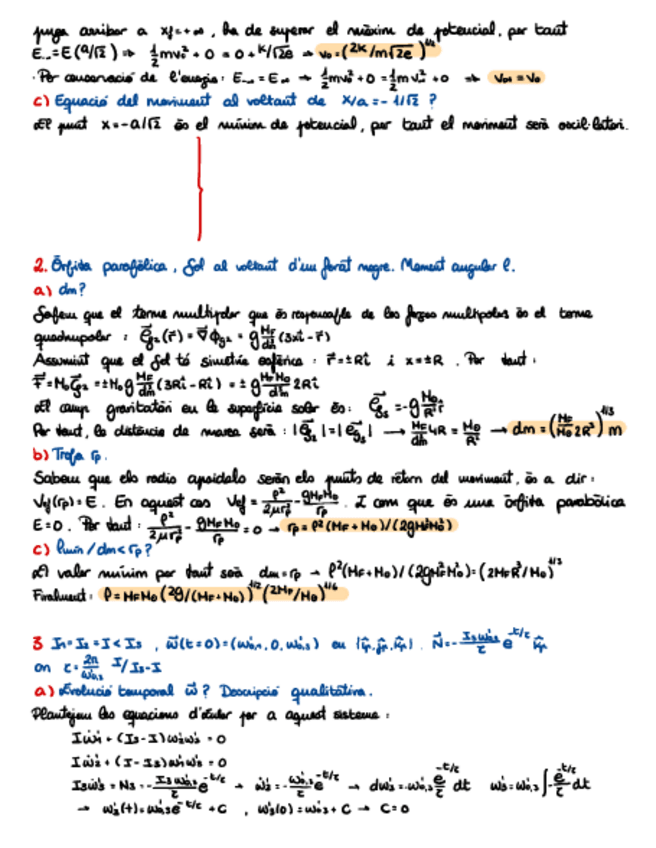 pugui arribar a x/=+∞, ha de superar el màxim de potencial, per tant
E₋∞=E(a/√2) ⇒ ½mv₀² + 0 = 0 + K/√2e → v₀=(2K/m√2e)^1/2
· Per conservació de l'energia: E₋∞ = E∞ → ½mv₀² + 0 = ½mv∞² + 0 ⇒ v∞ = v₀
c) Equació del moviment al voltant de x/a = -1/√2 ?
El punt x=-a/√2 és el mínim de potencial, per tant el moviment serà oscil·latori.
2. Òrbita parabòlica, Sol al voltant d'un forat negre. Moment angular ℓ.
a) dm?
Sabem que el terme multipolar que és responsable de les forces multipolars és el terme
quadrupolar : g⃗₂(r⃗) = ∇⃗Φg₂ = g MF/dm³ (3xî - r⃗)
Assumint que el Sol té simetria esfèrica : r⃗=±Rî i x=±R . Per tant :
F⃗=M₀g⃗₂ = ±M₀g MF/dm³ (3Rî - Rî) = ± g MFM₀/dm³ 2Rî
El camp gravitatori en la superfície solar és: g⃗s = -g M₀/R² r̂
Per tant, la distància de marea serà : |g⃗₂| = |g⃗s| → MF/dm³ 4R = M₀/R² → dm = (MF/M₀ 2R³)^1/3 m
b) Troba rp.
Sabem que els radis apsidals seran els punts de retorn del moviment, és a dir :
Vef(rp) = E . En aquest cas Vef = ℓ²/2μrp² - gMFM₀/rp . I com que és una òrbita parabòlica
E=0 . Per tant : ℓ²/2μrp² - gMFM₀/rp = 0 → rp = ℓ²(MF + M₀)/(2gMF²M₀²)
c) ℓmín / dm<rp?
El valor mínim per tant serà dm=rp → ℓ²(MF+M₀)/(2gMF²M₀²) = (2MFR³/M₀)^1/3
Finalment : ℓ = MFM₀ (2g/(MF+M₀))^1/2 (2MF/M₀)^1/6
3 I₁=I₂=I < I₃ , ω⃗(t=0)=(ω₀,₁, 0, ω₀,₃) en |î, ĵ, k̂| . N⃗ = - I₃ω₀,₃/τ e^-t/τ k̂
on τ = 2π/ω₀,₃ I/I₃-I
a) Evolució temporal ω⃗? Descripció qualitativa.
Plantejem les equacions d'Euler per a aquest sistema :
Iω̇₁ + (I₃-I)ω₂ω₃ = 0
Iω̇₂ + (I-I₃)ω₁ω₃ = 0
I₃ω̇₃ = N₃ = - I₃ω₀,₃/τ e^-t/τ → ω̇₃ = - ω₀,₃/τ e^-t/τ → dω₃ = -ω₀,₃ e^-t/τ/τ dt ω₃ = ω₀,₃ ∫ - e^-t/τ/τ dt
→ ω₃(t) = ω₀,₃e^-t/τ + C , ω₃(0) = ω₀,₃ + C → C=0